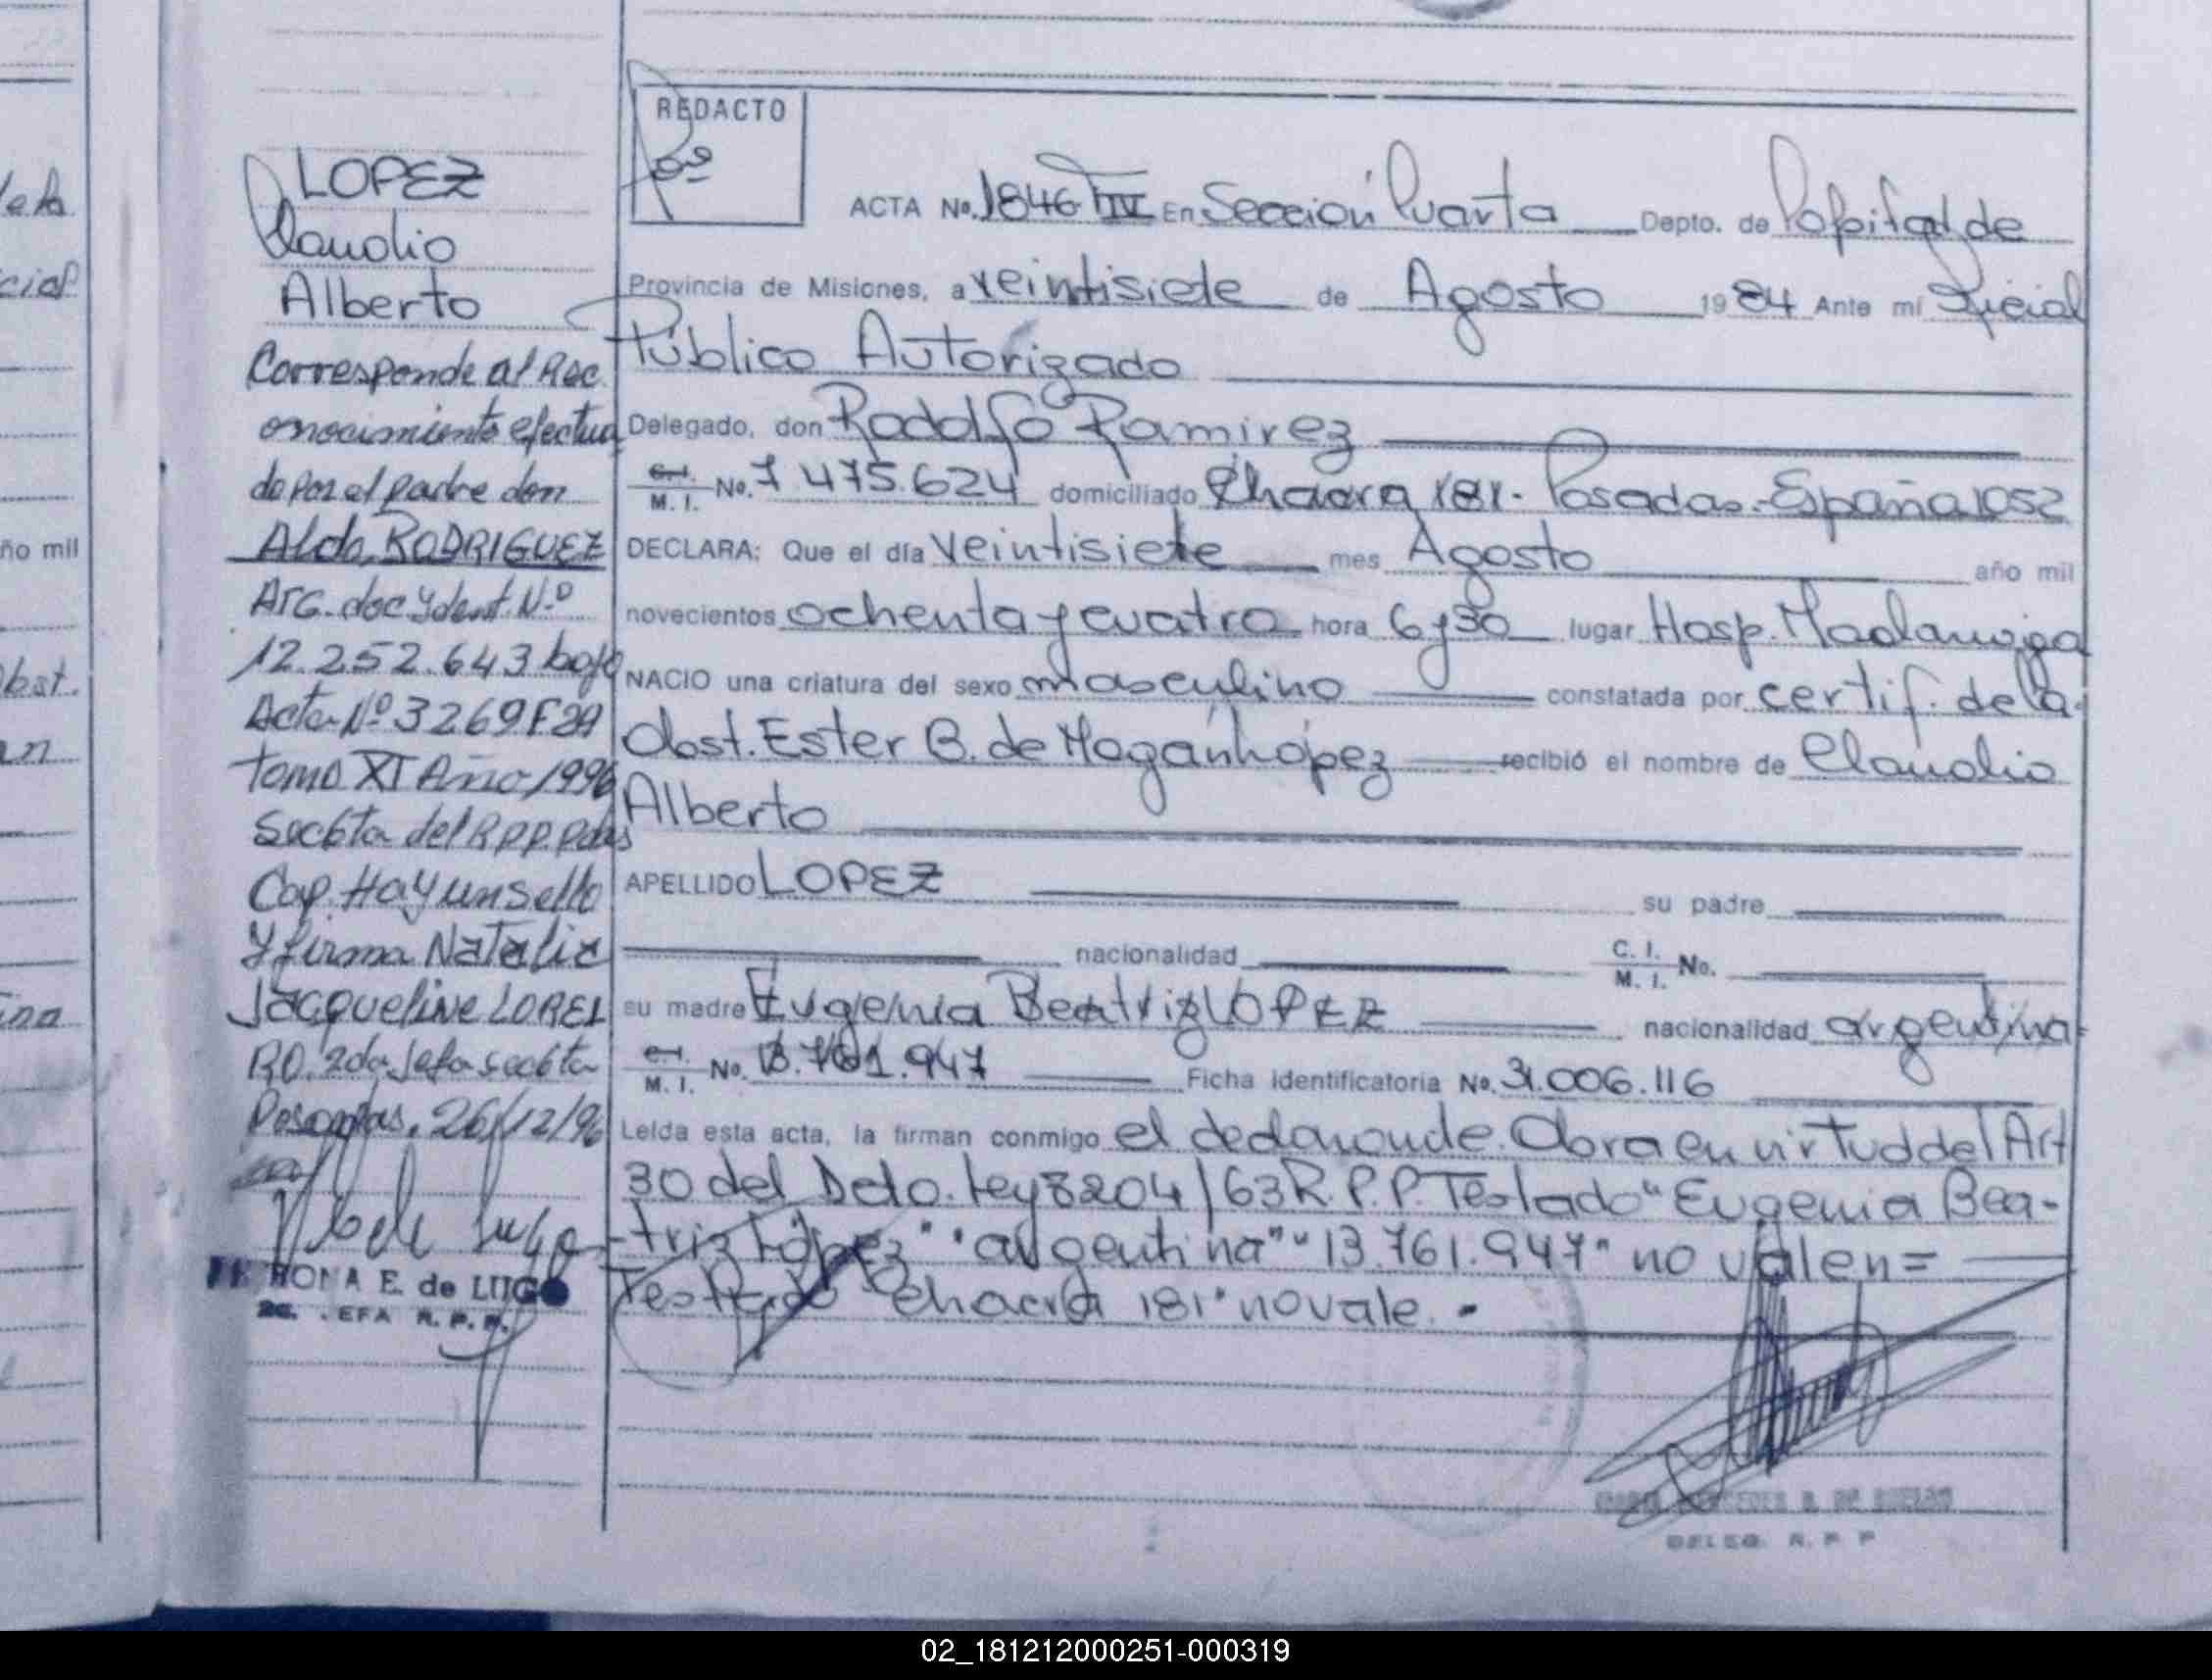 LOPEZ
Claudio
Alberto
Corresponde al Rec
onocimiento efectua
do por el padre don
Aldo, RODRIGUEZ
Arg. doc ydent. N.º
12.252.643 bajo
Acta Nº 3269 F 29
tomo XI Año 1996
Secc 6ta del R.P.P. Pdas
Cap. Hay un sello
y firma Natalia
Jacqueline LOPEZ
R.O. 2da Jefa secc 6ta
Posadas. 26/12/96
E. de LUGO
2a. JEFA R.P.P.
REDACTO
ACTA No. 1846 T IV En Sección Cuarta Depto. de Capital de
Provincia de Misiones, a veintisiete de Agosto 1984 Ante mí Oficial
Público Autorizado
Delegado, don Rodolfo Ramirez
C.I. M. I. No. 7 475.624 domiciliado Chacra 181 - Posadas - España 1052
DECLARA: Que el día veintisiete mes Agosto año mil
novecientos ochenta y cuatro hora 6 y 30 lugar Hosp. Madariaga
NACIO una criatura del sexo masculino constatada por certif. de la
Obst. Ester B. de recibió el nombre de Claudio
Alberto
APELLIDO LOPEZ su padre
nacionalidad C. I. M. I. No.
su madre Eugenia Beatriz LOPEZ nacionalidad argentina
C.I. M. I. No. 13.761.947 Ficha identificatoria No. 31.006.116
Leída esta acta, la firman conmigo el declarante. Obra en virtud del Art
30 del Dcto. Ley 8204/63 R.P.P. Testado "Eugenia Bea-
-triz López" "argentina" "13.761.947" no valen =
Testado "Chacra 181" no vale. -
DELEG. R. P. P
ño mil
02_181212000251-000319